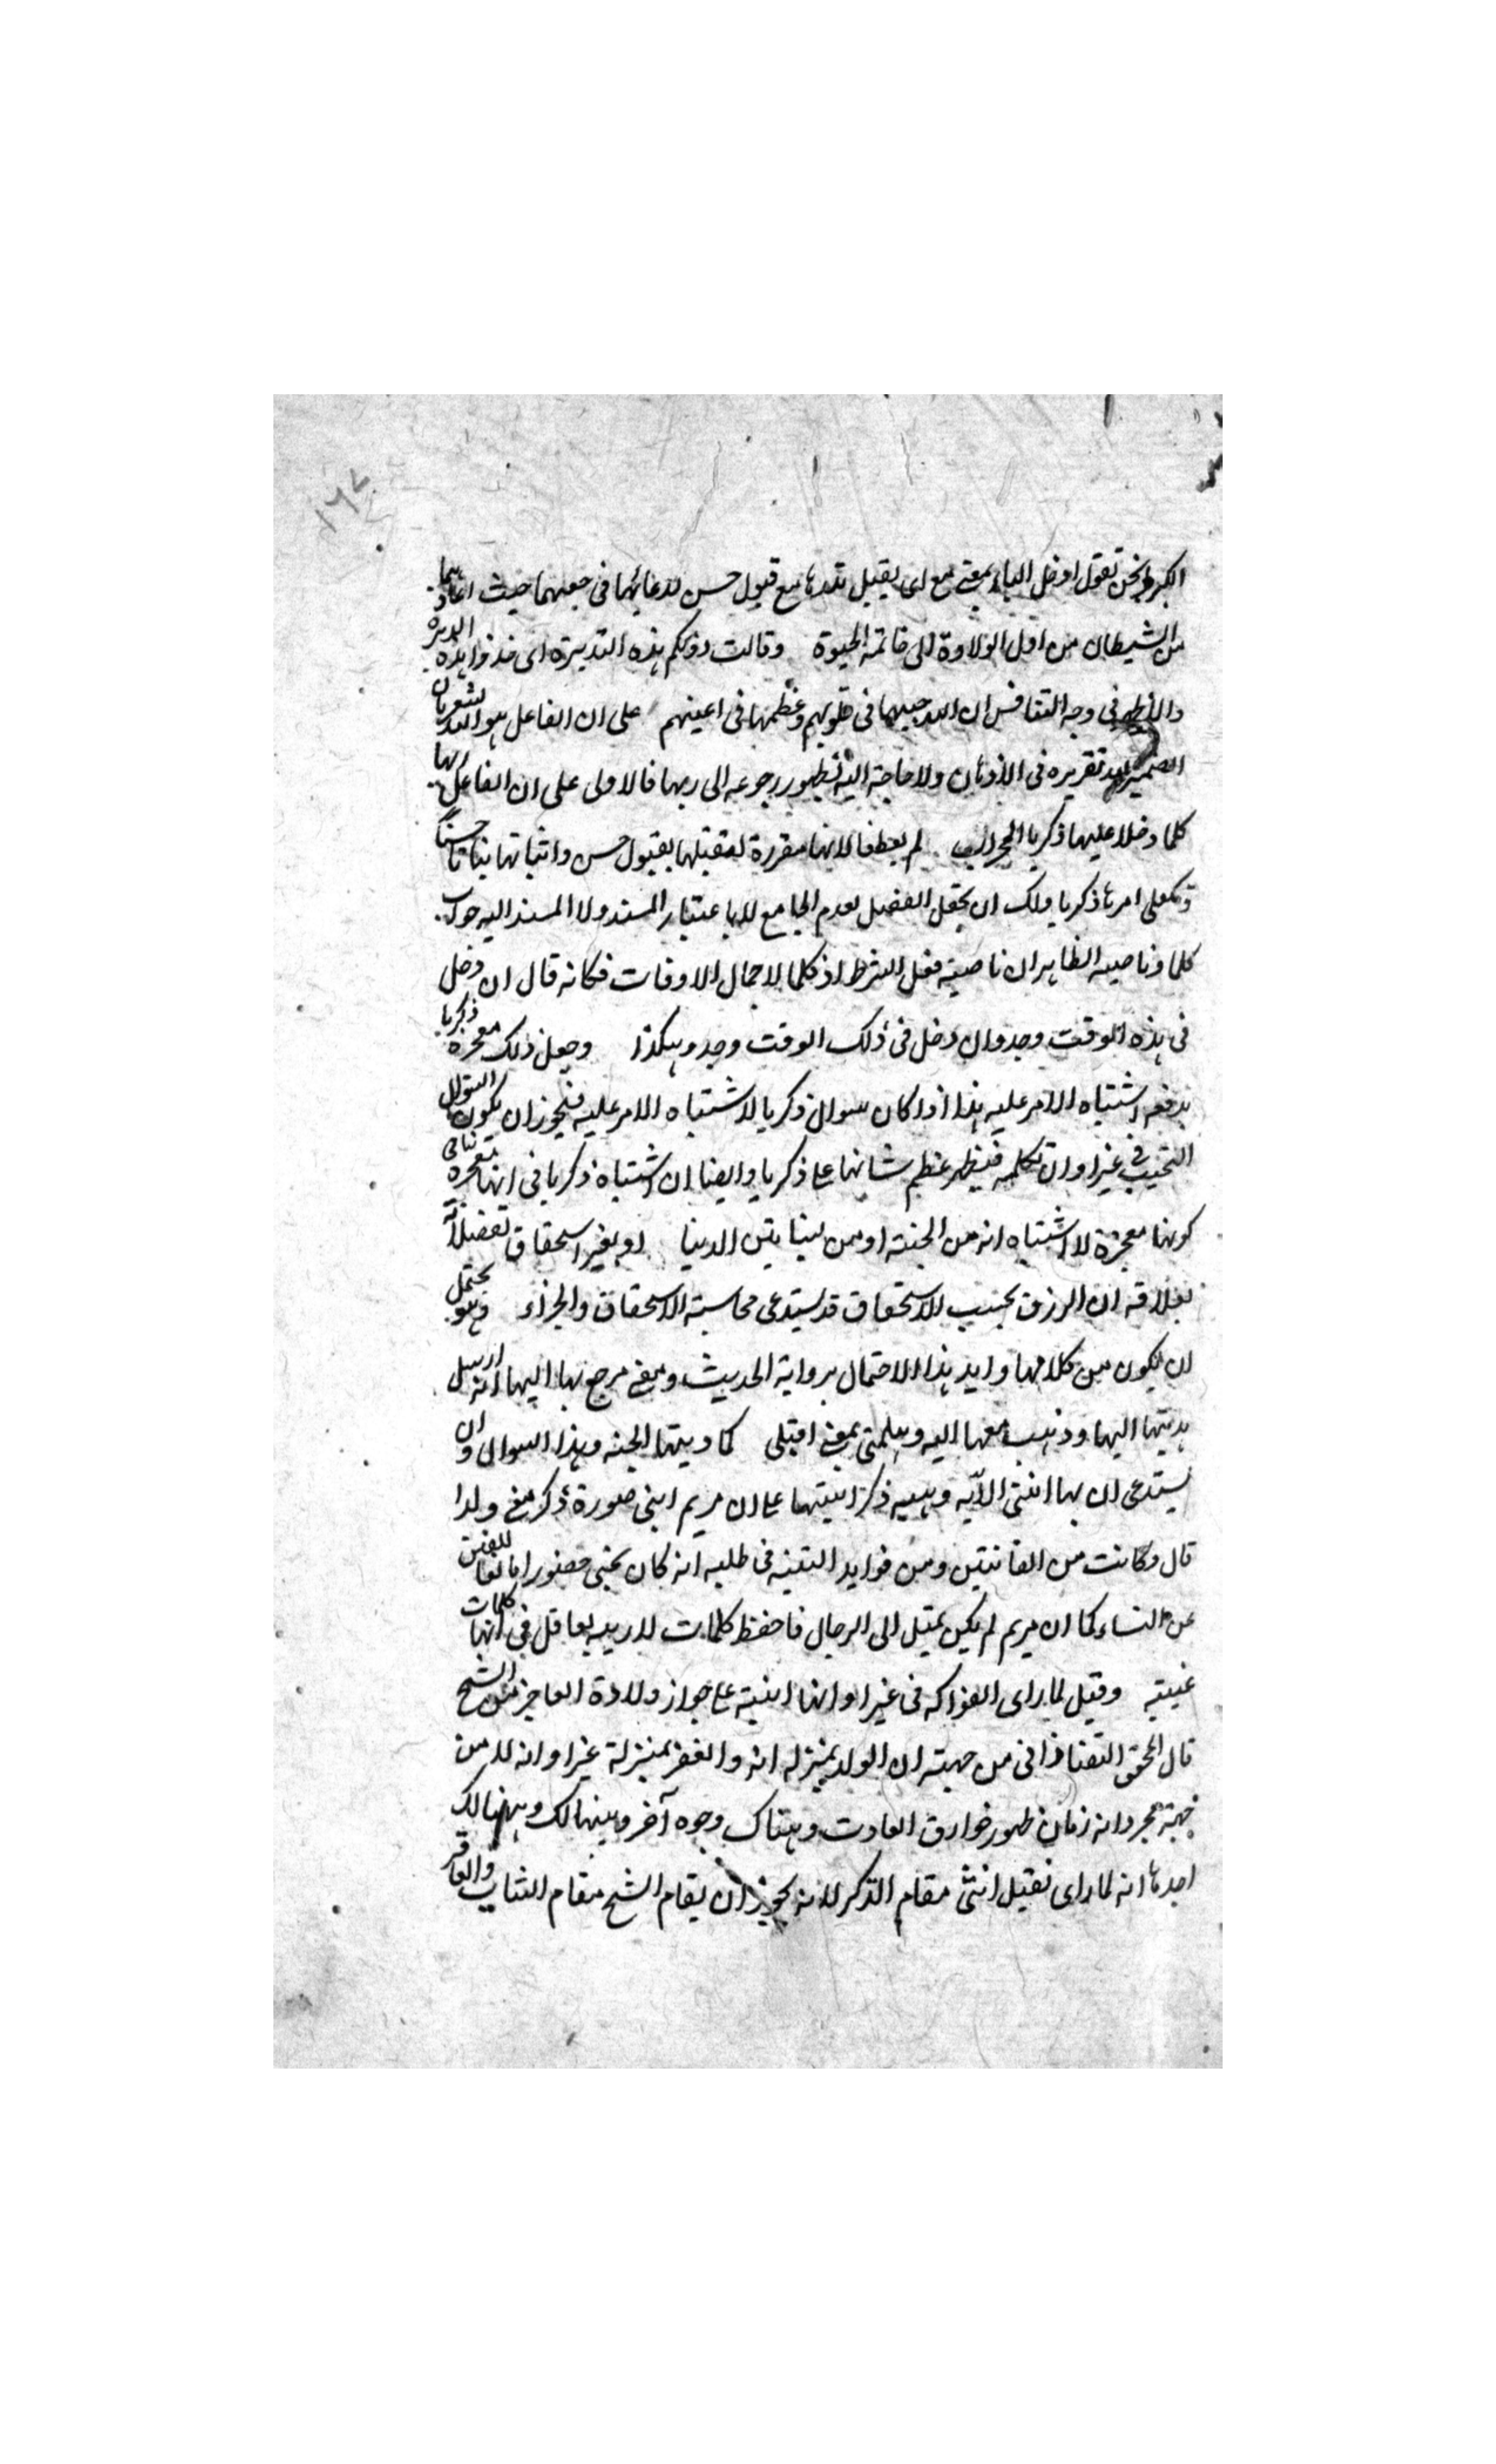 ١٦٧
الكبر ونحن نقول ادخل الباء بمعنى مع اى يقبل نذرها مع قبول حسن لدعائها فى حقهما حيث اعاذهما
من الشيطان من اول الولادة الى خاتمة الحيوة وقالت دونكم هذه النذيرة اى خذوا هذه النذيرة
والاظهر فى وجه التنافس ان الله حببها فى قلوبهم وعظمها فى اعينهم على ان الفاعل هو الله
الضمير تقريره فى الاذهان ولا حاجة اليه لظهور رجوعه الى ربها فالاولى على ان الفاعل ربها
كلما دخل عليها زكريا المحراب لم يعطف لانها مقررة لتقبلها بقبول حسن وانباتها نباتا حسنا
امرها زكريا ولك ان تجعل الفصل لعدم الجامع لا باعتبار المسند ولا المسند اليه جواب
كلما وناصبه الظاهر ان ناصبه فعل الشرط اذ كلما لاجمال الاوقات فكانه قال ان دخل
فى هذه الوقت وجد وان دخل فى ذلك الوقت وجد وهكذا وجعل ذلك معجزة زكريا
يدفعه اشتباه الامر عليه هذا اذا كان سوال زكريا لاشتباه الامر عليه فيجوز ان يكون السوال
التعجيب فى غير اوان تكلمه فيظهر عظم شانها على زكريا وايضا ان اشتباه زكريا فى انها معجزة
كونها معجزة لا اشتباه انه من الجنة او من بساتين الدنيا او بغير استحقاق تفضلا به
ان الرزق بحسب الاستحقاق قد يستدعى محاسبة الاستحقاق والجزاء وهو يحتمل
ان يكون من كلامها وايد هذا الاحتمال برواية الحديث ومعنى رجع بها اليها انه ارسل
هديتها اليها وذهب معها اليه وهلمى بمعنى اقبلى الجنة وهذا السوال وان
يستدعى ان بها انثى الآية وهيبه ذكر على ان مريم انثى صورة ذكر معنى ولذا
قال وكانت من القانتين ومن فوايد فى طلبه انه كان يحيى حصورا
من النساء كما ان مريم لم يكن تميل الى الرجال فاحفظ كلمات لا ريب لعاقل فى انها كلمات
غيبته وقيل لما راى الفواكه فى غير اوانها انتبه على جواز ولادة العاجز من الشيخ
قال المحقق التفتازانى من جهة ان الولد بمنزلة وانه لا من
جهة مجرد انه زمان ظهور خوارق العادت وهناك وجوه آخر
احدها انه لما راى تقبل انثى مقام الذكر لانه يجوز ان يقام الشيخ مقام الشاب والعاقر